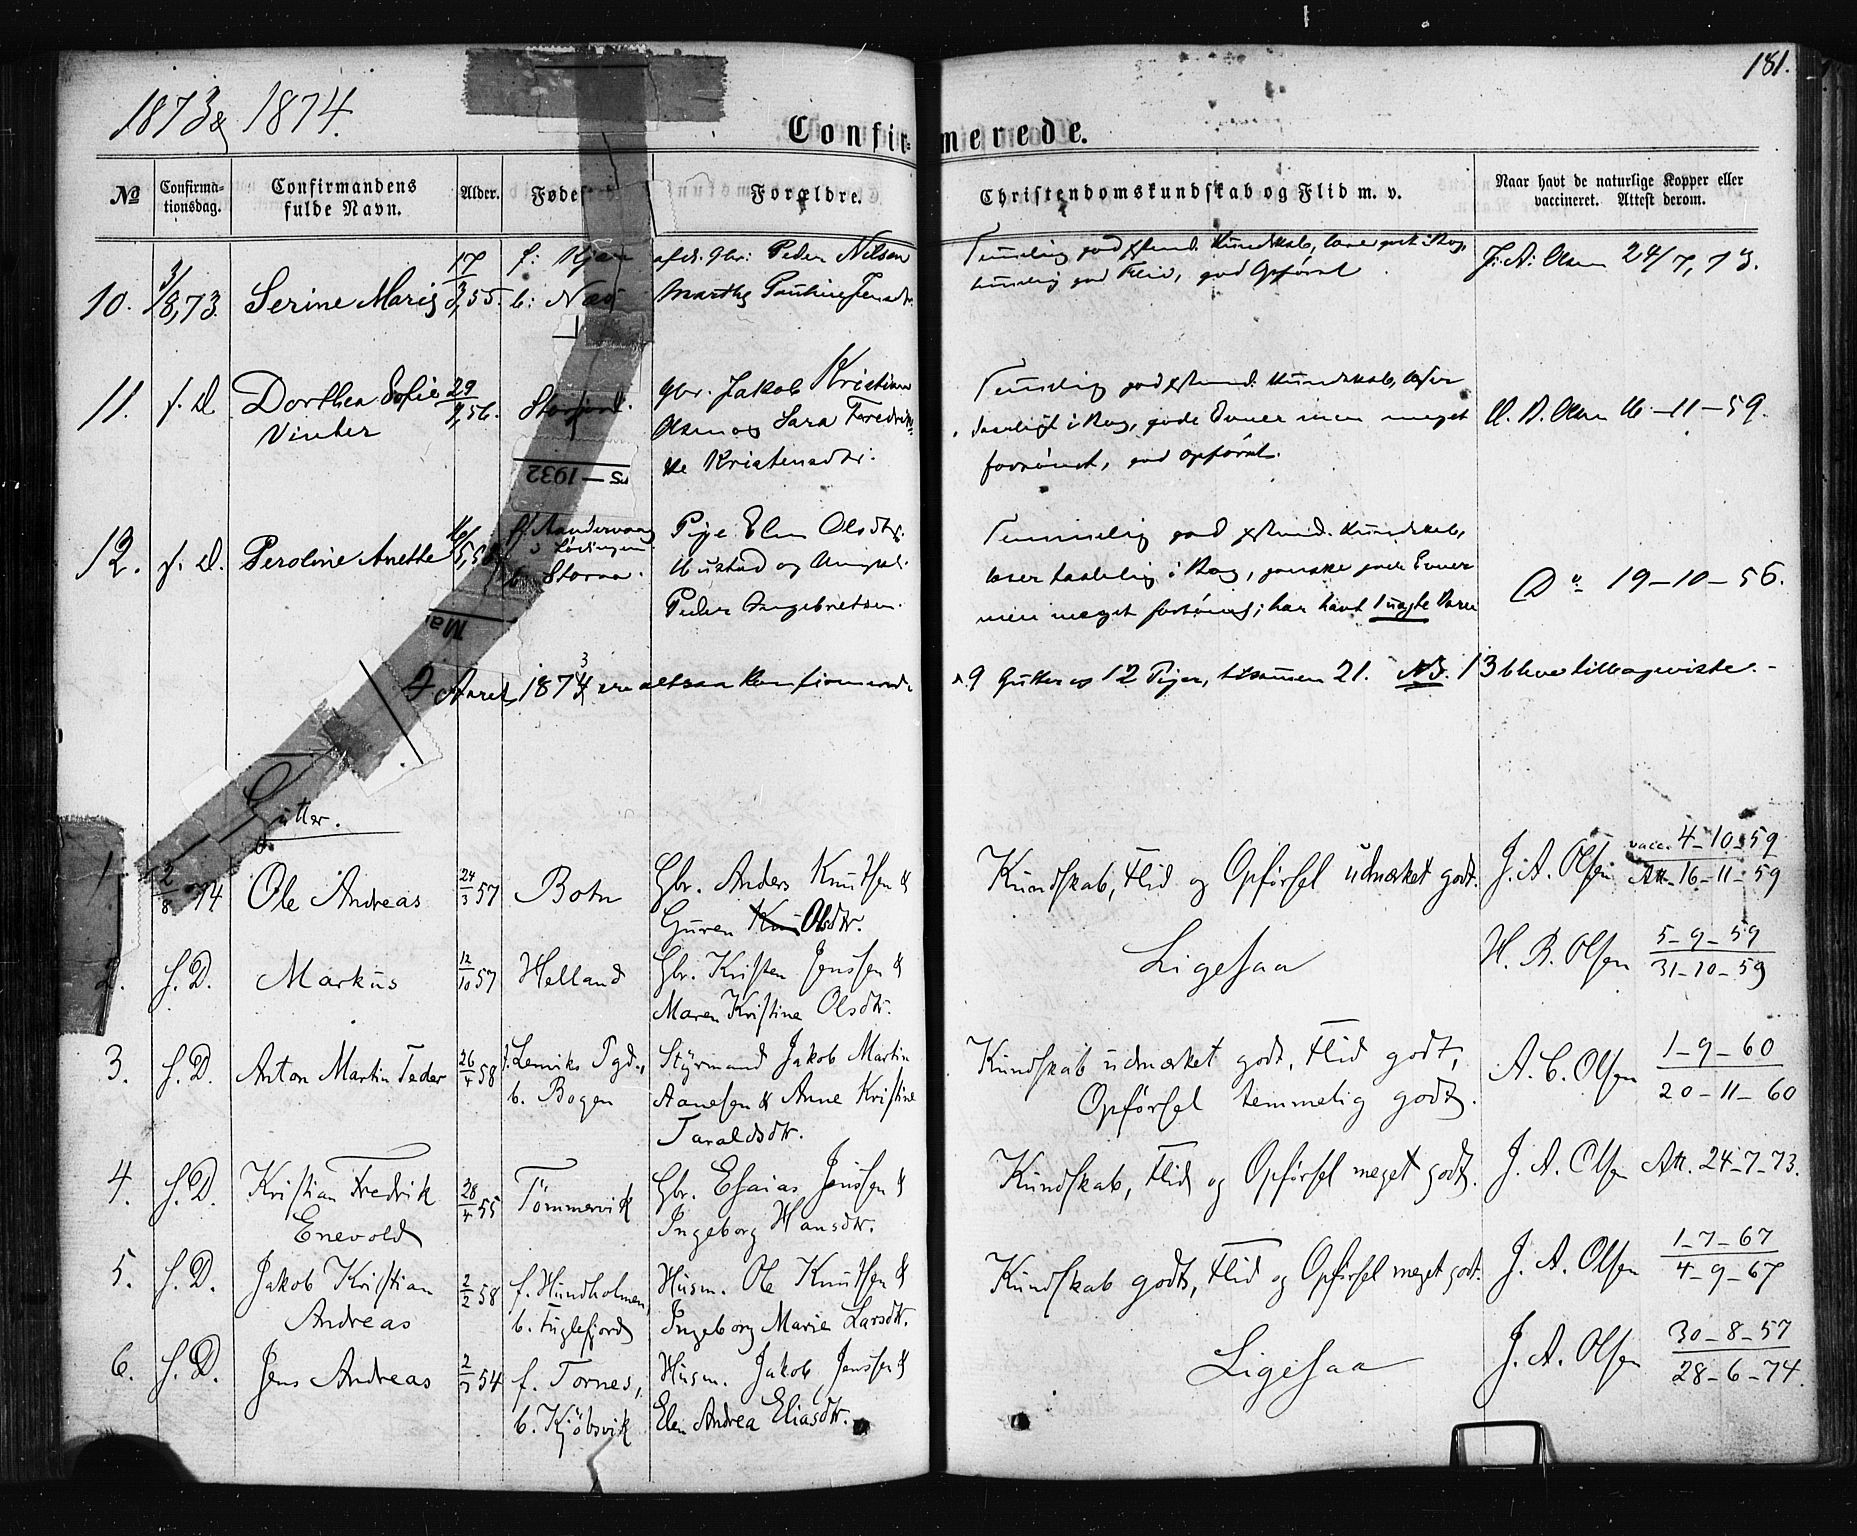 181.
1873 & 1874.
Confir=merede.
No
Confirma=
tionsdag.
Confirmandens
fulde Navn.
Alder.
Fødested
Forældre.
Christendomskundskab og Flid m. v.
Naar havt de naturlige Kopper eller
vaccineret. Attest derom.
10. 3/8,73. Serine Marie 17/3,55. f: b: Næs afd. Gbr: Peder Nilsen
Marthe Pauline Jensdtr.
Temmelig god Kundskab,
temmelig god Flid, god Opførsel
J. A. Olsen 24/7, 73.
11. s. D. Dorthea Sofie
Vinter
29/9,56. Storjord. Gbr. Jakob Kristian
Olsen og Sara Fredrik=
ke Kristensdtr.
Temmelig god Kundskab, læser
daarligt i Bog, gode Evner men meget
forsømt, god Opførsel.
A. B. Olsen 16-11-59.
12. s. D. Peroline Anette b. Storaa. Pige Elen Olsdtr.
Ustad og Ungkl.
Peder Ingebretsen.
Temmelig god Kundskab,
læser taalelig i Bog, ganske gode Evner
men meget forsømt; har havt 1 uægte Barn
Do 19-10-56.
1932
Mai
I Aaret 1873 ere altsaa konfirmerede
9 Gutter og 12 Piger, tilsammen 21. NB. 13 bleve tilbageviste.-
Gutter.
1. 2/8 74 Ole Andreas 24/3 57 Botn Gbr. Anders Knutsen &
Guren Olsdtr.
Kundskab, Flid og Opførsel udmærket godt. J. A. Olsen vacc. 4-10-59
Att. 16-11-59
2. s. D. Markus 12/10 57 Helland Gbr. Kristen Jenssen &
Maren Kristine Olsdtr.
Ligesaa H. B. Olsen 5-9-59
31-10-59
3. s. D. Anton Martin Peder 26/4 58 f. Lenviks Pgd.,
b. Bogen
Styrmand Jakob Martin
Aanesen & Anne Kristine
Taraldsdtr.
Kundskab udmærket godt, Flid godt,
Opførsel temmelig godt.
A. C. Olsen 1-9-60
20-11-60
4. s. D. Kristian Fredrik
Enevold
28/4 55 Tömmervik Gbr. Esaias Jenssen &
Ingeborg Hansdtr.
Kundskab, Flid og Opførsel meget godt. J. A. Olsen Att. 24-7-73.
5. s. D. Jakob Kristian
Andreas
2/2 58 f. Hundholmen,
b. Fuglefjord
Husm. Ole Knutsen &
Ingeborg Marie Larsdtr.
Kundskab godt, Flid og Opførsel meget godt. J. A. Olsen 1-7-67
4-9-67
6. s. D. Jens Andreas 54 f. Tornes,
b. Kjöbsvik
Husm. Jakob Jenssen &
Elen Andrea Eliasdtr.
Ligesaa J. A. Olsen 30-8-57
28-6-74.